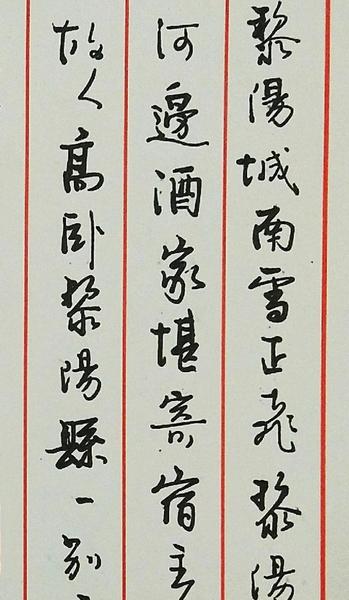 黎陽城南雪正飛黎陽
河邊酒家堪寄宿主
故人高卧黎陽縣一别